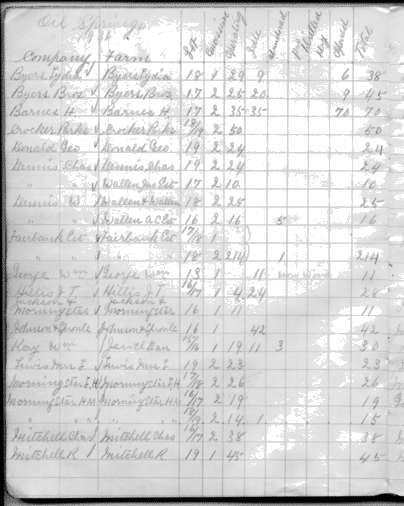 Oil Springs
1936
Company Farm Lot Concession Operating Idle Abandoned Total
Byers Lydia Byers Lydia 18 1 29 9 6 38
Byers Bros Byers Bros 17 2 25 20 9 45
Barnes H. Barnes H. 17 2 35 35 70 70
Crocker Parks Crocker Parks 18/19 2 50 50
Donald Geo Donald Geo 19 2 24 24
Dennis Chas Dennis Chas 19 2 24 24
" " Wallen Est 17 2 10 10
Dennis W. Wallen & Wallen 18 2 25 25
" " Wallen A C Est 16 2 16 5 16
Fairbank Est Fairbank Est 17/18 1
" " " " 18 2 214 1 214
George Wm George Wm 18 1 11 11
Hillis J T Hillis J T 16/17 1 4 24 28
Jackson & Morningster Jackson & Morningster 16 1 11 11
Johnson & Sproule Johnson & Sproule 16 1 42 42
Kay Wm 1 19 11 3 30
Lewis Mrs L. Lewis Mrs L. 19 2 23 23
Morningster F.H Morningster F.H 17/18 2 26 26
Morningster H M Morningster H M 16/17 2 19 19
" " " " 18/19 2 14 1 15
Mitchell Chas Mitchell Chas 16/17 2 38 38
Mitchell R Mitchell R 19 1 45 45